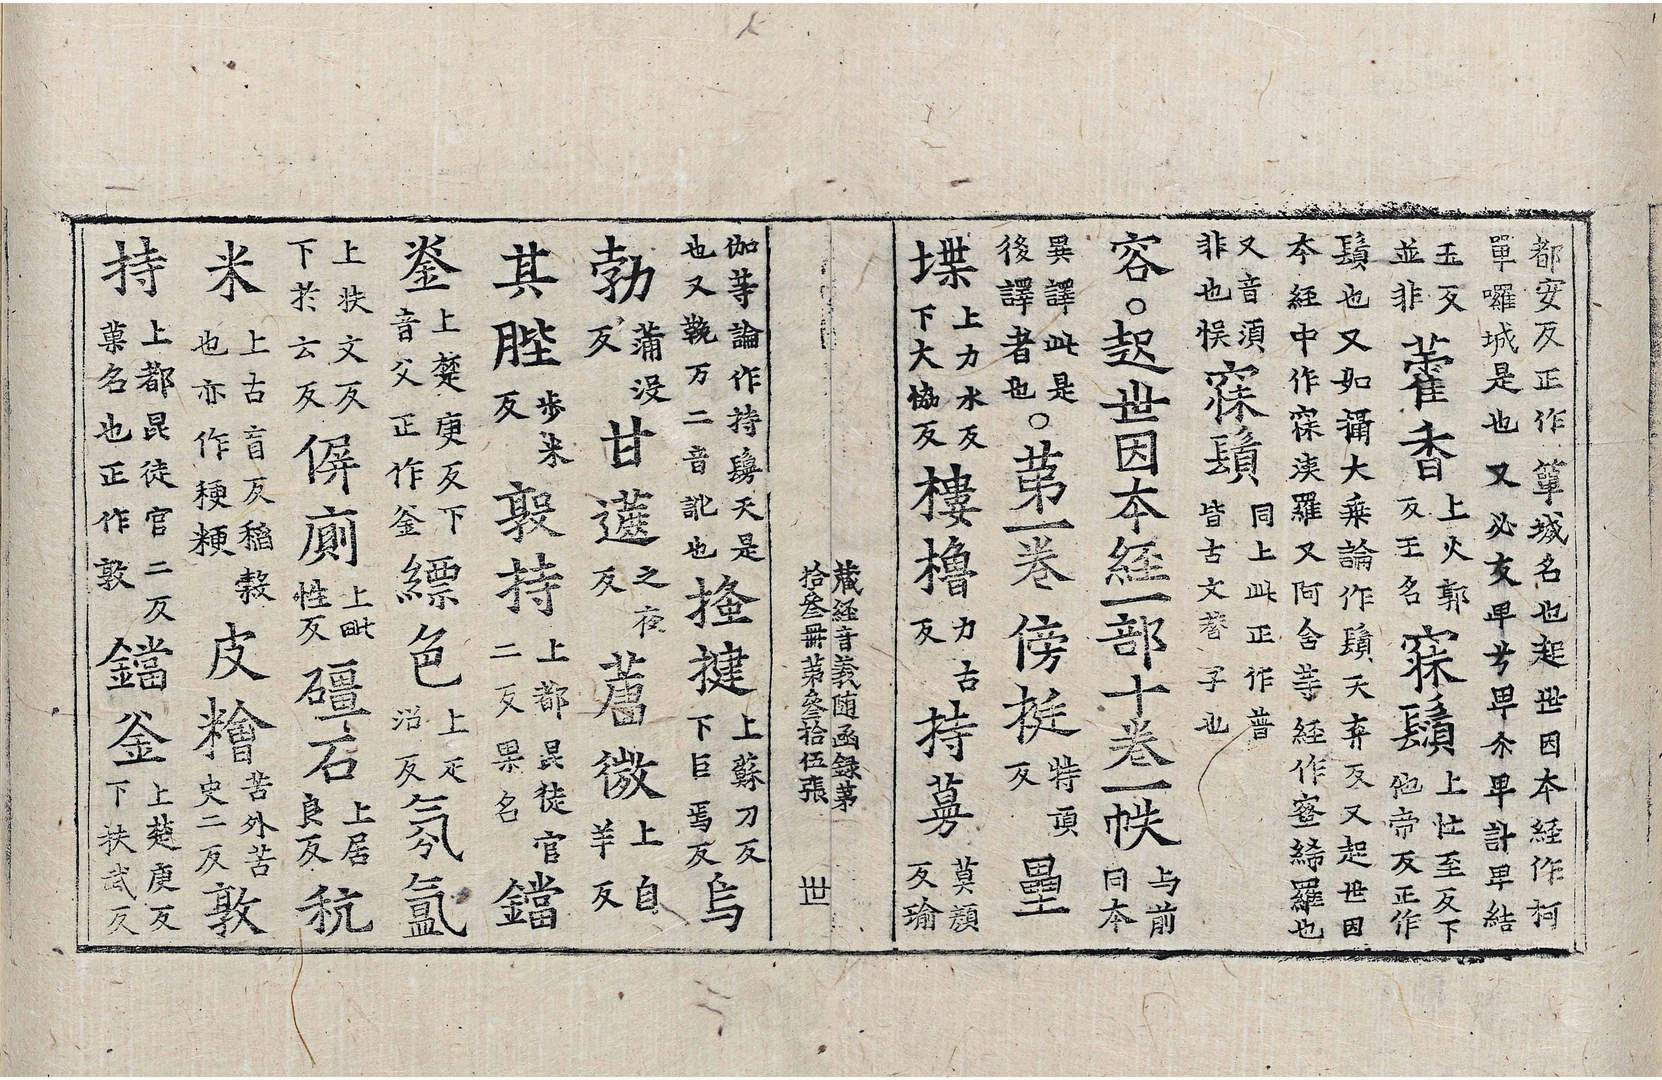 都安反正作箄城名也起世因本経作柯
單囉城是也又必友卑兮卑尒卑計卑結
玉反並非藿香上火郭反王名寐鬚上忙至反下他帝反正作
鬚也又如攝大乗論作鬚天弃反又起世因
本経中作寐洟羅又阿舍等経作蜜絺羅也
又音須非也悮寐鬚同上此正作普皆古文替子也
容。起世因本経一部十卷一帙与前同本
異譯此是後譯者也。第一卷傍挺特頂反壘
堞上力水反下大恊反樓櫓力古反持蕚莫顔反瑜
藏経音義随函録第
拾叄冊第叄拾伍張 世
伽等論作持鬘天是也又輓万二音訛也掻揵上蘇刀反下巨焉反烏
勃蒲没反甘蔗之夜反蔷微上自羊反
其䏶步米反敦持上都昆徒官二反果名鐺
釜上楚庚反下音父正作釜縹色上疋沼反氛氳
上扶文反下扵云反偋廁上毗性反礓石上居良反秔
米上古盲反稻穀也亦作稉粳皮糩苦外苦史二反敦
持上都昆徒官二反菓名也正作敦鐺釜上楚庚反下扶武反